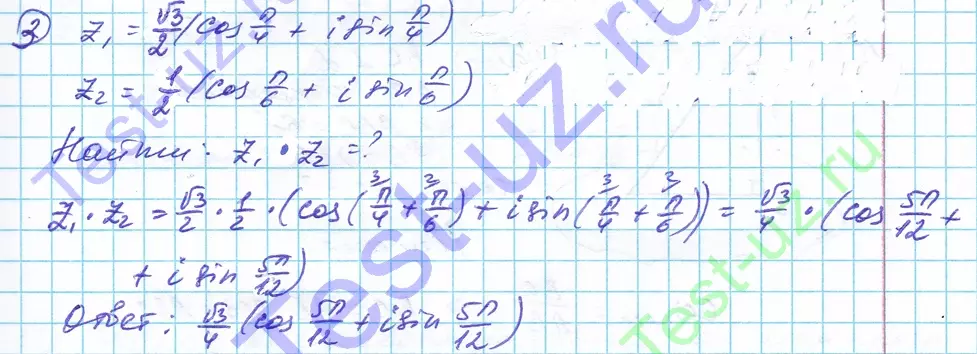 3 z₁ = √3/2 (cos π/4 + i sin π/4)
z₂ = 1/2 (cos π/6 + i sin π/6)
Найти: z₁ • z₂ = ?
z₁ • z₂ = √3/2 • 1/2 • (cos (³π/4 + ³π/6) + i sin (³π/4 + ³π/6)) = √3/4 • (cos 5π/12 +
+ i sin 5π/12)
Ответ: √3/4 (cos 5π/12 + i sin 5π/12)
Test-uz.ru
Test-uz.ru
Test-uz.ru